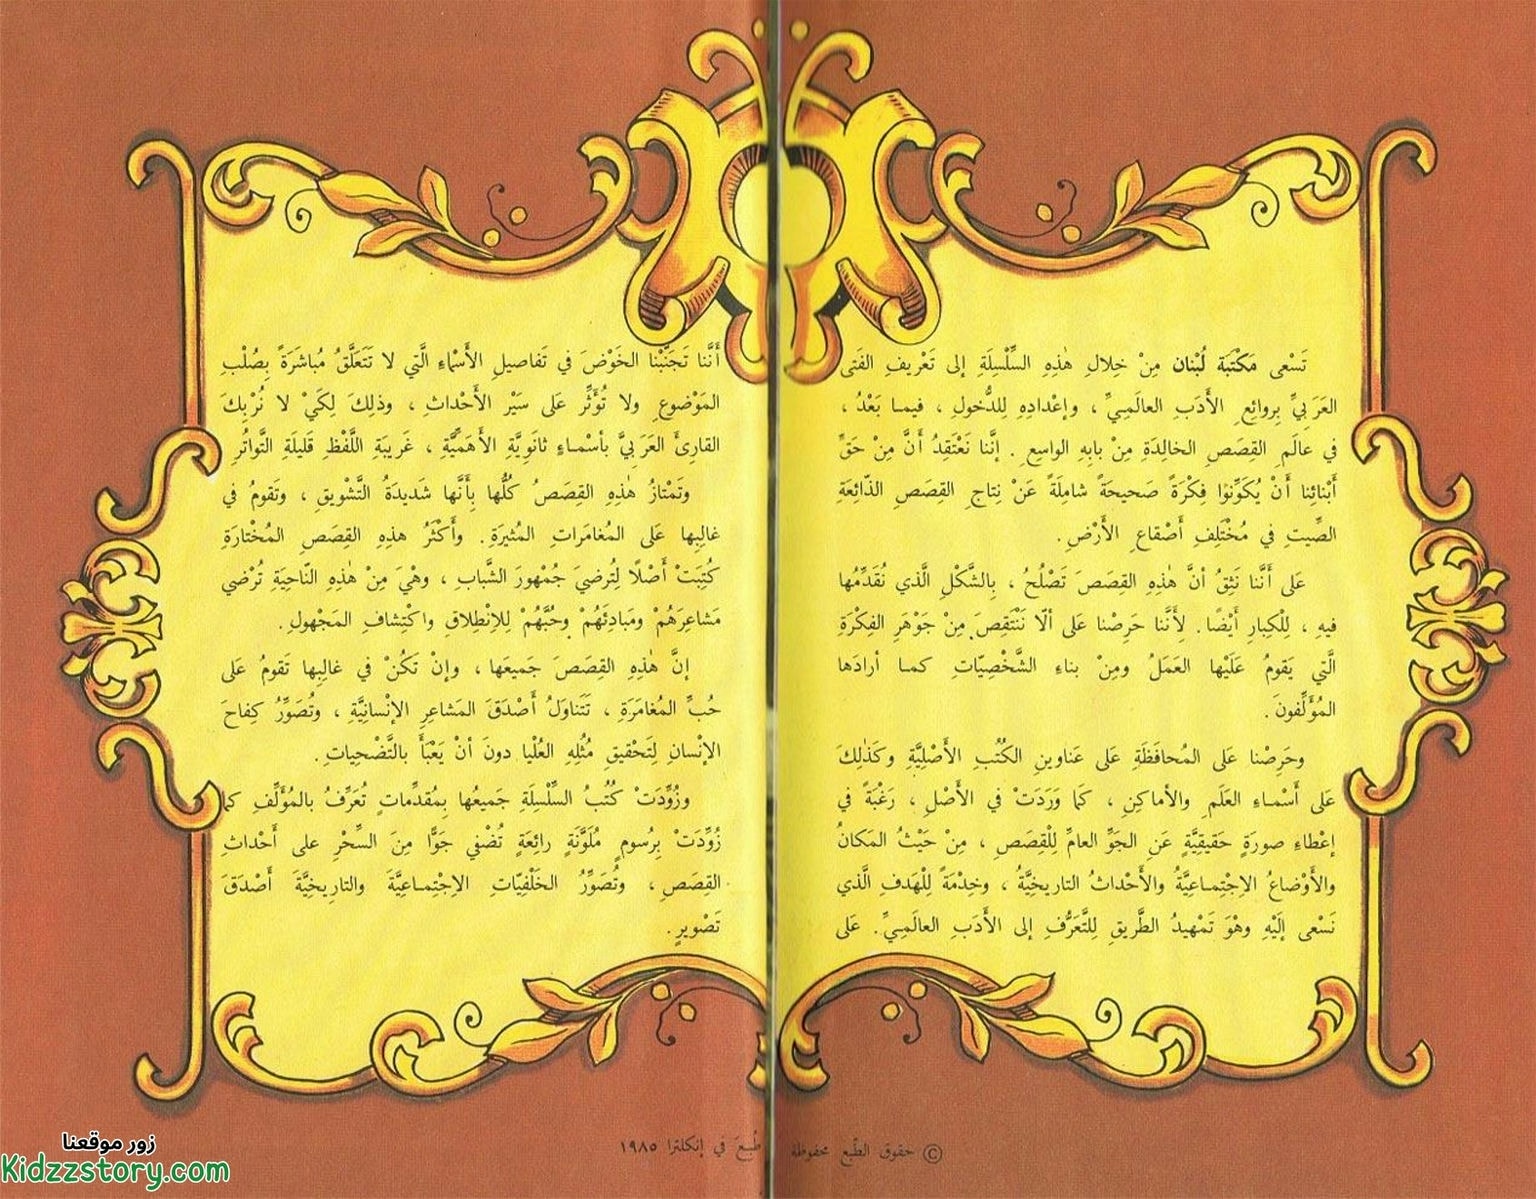 تَسْعى مَكْتَبَة لُبْنان مِنْ خِلالِ هٰذِهِ السِّلْسِلَةِ إلى تَعْريفِ الفَتى
العَرَبِيِّ بِروائِعِ الأَدَبِ العالَمِيِّ ، وإعْدادِهِ لِلدُّخولِ ، فيما بَعْدُ ،
في عالَمِ القِصَصِ الخالِدَةِ مِنْ بابِهِ الواسِعِ . إنَّنا نَعْتَقِدُ أَنَّ مِنْ حَقِّ
أَبْنائِنا أَنْ يُكَوِّنوا فِكْرَةً صَحيحَةً شامِلَةً عَنْ نِتاجِ القِصَصِ الذّائِعَةِ
الصِّيتِ في مُخْتَلِفِ أَصْقاعِ الأَرْضِ .
عَلى أَنَّنا نَثِقُ أنَّ هٰذِهِ القِصَصَ تَصْلُحُ ، بِالشَّكْلِ الَّذي نُقَدِّمُها
فيهِ ، لِلْكِبارِ أَيْضًا . لِأَنَّنا حَرِصْنا عَلى ألّا نَنْتَقِصَ مِنْ جَوْهَرِ الفِكْرَةِ
الَّتي يَقومُ عَلَيْها العَمَلُ ومِنْ بناءِ الشَّخْصِيّاتِ كما أرادَها
المُؤَلِّفونَ .
وحَرِصْنا عَلى المُحافَظَةِ عَلى عَناوينِ الكُتُبِ الأَصْلِيَّةِ وكَذٰلِكَ
عَلى أَسْماءِ العَلَمِ والأماكِنِ ، كَما وَرَدَتْ في الأَصْلِ ، رَغْبَةً في
إعْطاءِ صورَةٍ حَقيقِيَّةٍ عَنِ الجَوِّ العامِّ لِلْقِصَصِ ، مِنْ حَيْثُ المَكانُ
والأَوْضاعُ الاِجْتِماعِيَّةُ والأَحْداثُ التاريخِيَّةُ ، وخِدْمَةً لِلْهَدفِ الَّذي
نَسْعى إلَيْهِ وهْوَ تَمْهيدُ الطَّريقِ لِلتَّعَرُّفِ إلى الأَدَبِ العالَمِيِّ . عَلى
© حقوق الطبع محفوظة
أَنَّنا تَجَنَّبْنا الخَوْضَ في تَفاصيلِ الأَسْماءِ الَّتي لا تَتَعَلَّقُ مُباشَرَةً بِصُلْبِ
المَوْضوعِ ولا تُؤَثِّرُ عَلى سَيْرِ الأَحْداثِ ، وذلِكَ لِكَيْ لا نُرْبِكَ
القارِئَ العَرَبِيَّ بأسْماءٍ ثانَوِيَّةِ الأَهَمِّيَّةِ ، غَريبَةِ اللَّفْظِ قَليلَةِ التَّواتُرِ .
وتَمْتازُ هٰذِهِ القِصَصُ كُلُّها بِأَنَّها شَديدَةُ التَّشْويقِ ، وتَقومُ في
غالِبِها عَلى المُغامَراتِ المُثيرَةِ . وأَكْثَرُ هذِهِ القِصَصِ المُخْتارَةِ
كُتِبَتْ أَصْلًا لِتُرضيَ جُمْهورَ الشَّبابِ ، وهْيَ مِنْ هٰذِهِ النّاحِيَةِ تُرْضي
مَشاعِرَهُمْ ومَبادِئَهُمْ وحُبَّهُمْ لِلاِنْطِلاقِ واكْتِشافِ المَجْهولِ .
إنَّ هٰذِهِ القِصَصَ جَميعَها ، وإنْ تَكُنْ في غالِبِها تَقومُ عَلى
حُبِّ المُغامَرَةِ ، تَتَناوَلُ أَصْدَقَ المَشاعِرِ الإنْسانِيَّةِ ، وتُصَوِّرُ كِفاحَ
الإنْسانِ لِتَحْقيقِ مُثُلِهِ العُلْيا دونَ أنْ يَعْبَأَ بالتَّضْحِياتِ .
وزُوِّدَتْ كُتُبُ السِّلْسِلَةِ جَميعُها بِمُقدِّماتٍ تُعَرِّفُ بالمُؤَلِّفِ كما
زُوِّدَتْ بِرُسومٍ مُلَوَّنَةٍ رائِعَةٍ تُضْفي جَوًّا مِنَ السِّحْرِ على أَحْداثِ
القِصَصِ ، وتُصَوِّرُ الخَلْفِيّاتِ الاِجْتِماعِيَّةَ والتاريخِيَّةَ أَصْدَقَ
تَصْويرٍ .
طُبِعَ في إنكلترا ١٩٨٥
زور موقعنا
Kidzzstory.com